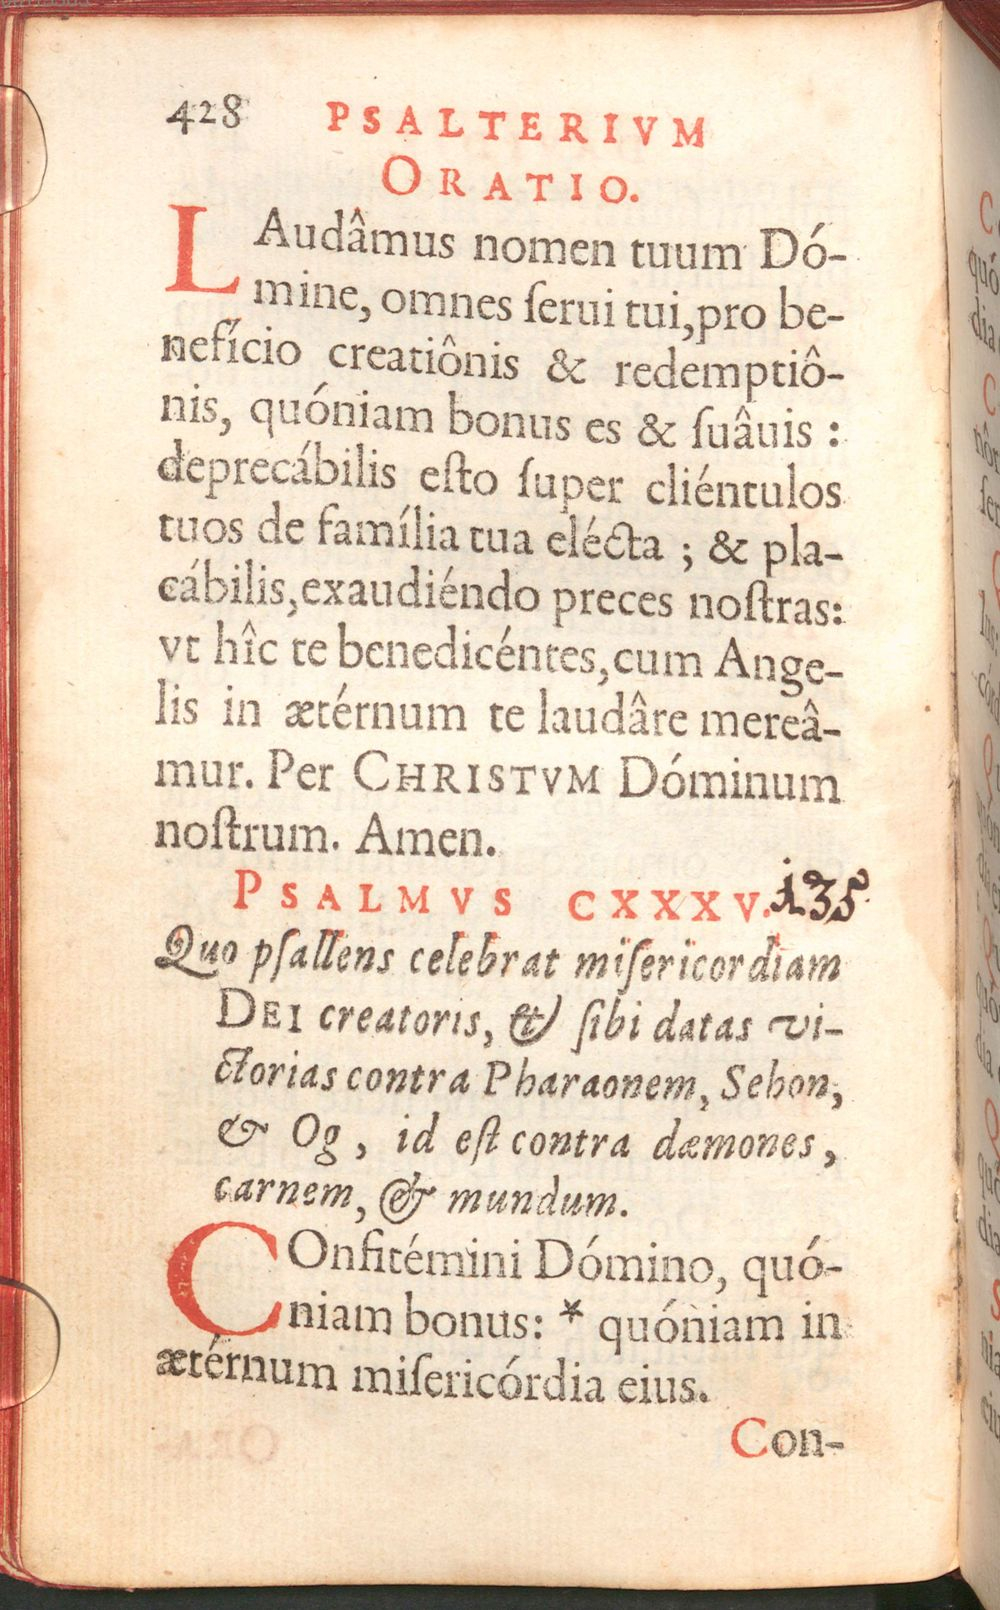 428 PSALTERIVM
ORATIO.
LAudâmus nomen tuum Dó-
mine, omnes ſerui tui, pro be-
nefício creatiônis & redemptiô-
nis, quóniam bonus es & ſuâuis :
deprecábilis eſto ſuper cliéntulos
tuos de família tua elécta ; & pla-
cábilis, exaudiéndo preces noſtras:
vt hîc te benedicéntes, cum Ange-
lis in ætérnum te laudâre mereâ-
mur. Per CHRISTVM Dóminum
noſtrum. Amen.
PSALMVS CXXXV. 135
Quo pſallens celebrat miſericordiam
DEI creatoris, & ſibi datas vi-
ctorias contra Pharaonem, Sehon,
& Og, id eſt contra dæmones,
carnem, & mundum.
COnfitémini Dómino, quó-
niam bonus: * quóniam in
ætérnum miſericórdia eius.
Con-